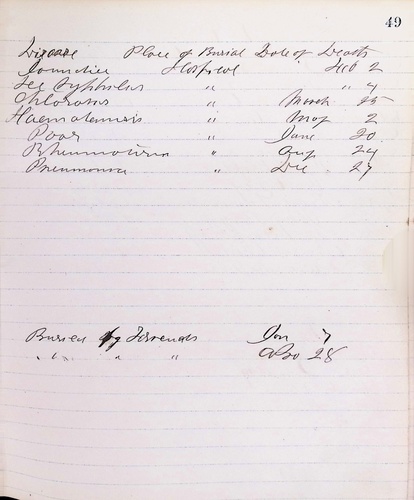 49
Disease Place of Burial Date of Death
Jaundice Hospital Feb 2
Sec Syphilus " " 4
Chlorosis " March 25
Haematemesis " May 2
Poor " June 20
Rheumatism " Aug 24
Pneumonia " Dec 27
Buried by Friends Jan 7
" " " 28